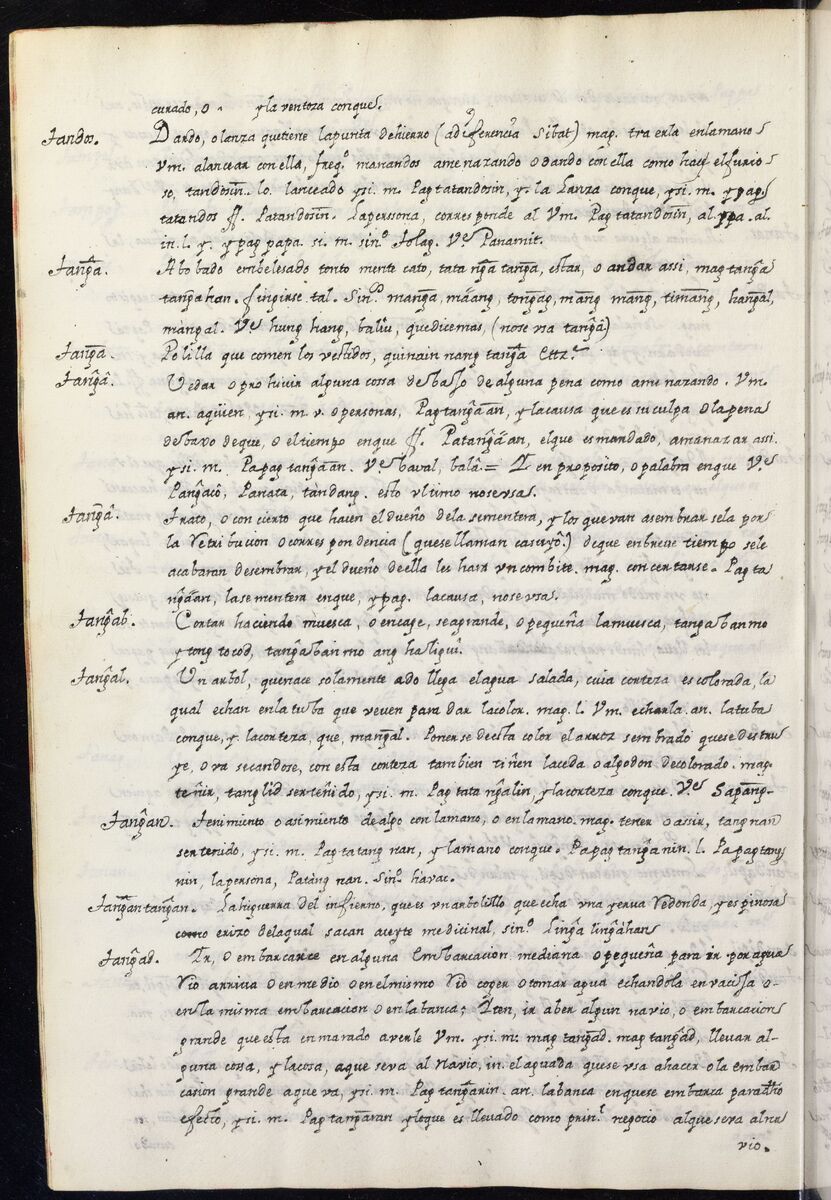 curado, o ^ y la ventoza conque.
Tandos. Dardo, o lanza quetiene lapunta dehierro (adiferencia sibat) mag. traerla enlamano
Vm. alancear conella, freq.o manandos amenazando o dando conella como haze elfurio-
so, tandosin. lo lanceado ysi. m. Pagtatandosin, y. la Lanza conque, ysi. m. ypag
tatandos ff. Patandosin. Laperssona, corresponde al Vm. Pagtatandosin, al ypa. al.
in. l. y. ypag papa. si. m. sin.o tolag. V.e Panamit.
Tanga. Abobado embelesado tonto mente cato, tata nga tanga, estar, o andar assi, mag tanga
tangahan. fingirse tal. Sin.o manga, maang, tongag, mang mang, timang, hangal,
mangal. V.e hung hang, baliu, quedicemas, (nose vsa tanga)
Tanga. Polilla que comen los vestidos, quinain nang tanga Ettz.a
Tanga. Vedar o prohiuir alguna cossa debaJo dealguna pena como amenazando. Vm.
an. aquien, ysi. m. v. opersonas, Pagtangaan, ylacausa que essuculpa olapena
debaxo deque, o eltiempo enque ff. Patangaan, elque esmandado, amanazar assi.
ysi. m. Papagtangaan. V.e baval, bala = It en proposito, o palabra enque V.e
Pangaco, Panata, tandang. esto vltimo nosevsa.
Tanga. Trato, o concierto que hacen eldueño dela sementera, y los quevan asembrarsela por
la Retribucion o correspondencia (quesellaman casuyo.) deque enbreue tiempo sele
acabaran desembrar, yel dueño deella les hara vn combite. mag. concertarse. Pagta
ngaan, lasementera enque, ypag. lacausa, nosevsa.
Tangab. Cortar haciendo muesca, o encage, seagrande, o pequeña lamuesca, tangabanmo
ytong tocod, tangabanmo ang haligui.
Tangal. Un arbol, quenace solamente ado llega elagua salada, cuia corteza es colorada, la
qual echan enla tuba que veuen para dar lacolor. mag. l. Vm. echarla. an. latuba
conque, y. lacorteza, que, mangal. Ponerse deesta color el arroz sembrado quesedestru
ye, o va secandose, con esta corteza tambien tiñen laceda o algodon decolorado. mag.
teñir, tanglid serteñido, ysi. m. Pagtata ngalin, ylacorteza conque. V.e Sapang.
Tangan. Tenimiento o asimiento dealgo conlamano, o enlamano. mag. tener o assir, tangnan
sertenido, ysi. m. Pagtatang nan, ylamano conque. Papagtanganin. l. Papagtang
nin, lapersona, Patang nan. Sin.o havac.
Tangantangan. Lahiguerra del infierno, que es vn arbolillo que echa vna yerua Redonda, yespinosa
como erizo delaqual sacan aceyte medicinal, sin.o Linga lingahan
Tangad. Ir, o embarcarce en alguna Embarcacion mediana o pequeña para ir por agua
Rio arriua o en medio o enelmismo Rio coger otomar agua echandola en vaciJa o-
enla misma embarcacion o enla banca; Iten, ir aber algun navio, o embarcacion
grande que esta enmarado averle Vm. ysi. m. mag tangad. mag tangad, lleuar al-
guna cossa, ylacosa, aque seva al Navio, in. elaguada quese vsa ahacer ola embar
cacion grande aque va, ysi. m. Pagtangarin. an. labanca enquese embarca paradho
efecto, ysi. m. Pagtangaran yloque es lleuado como prin.l negocio alque seva alna
vio.